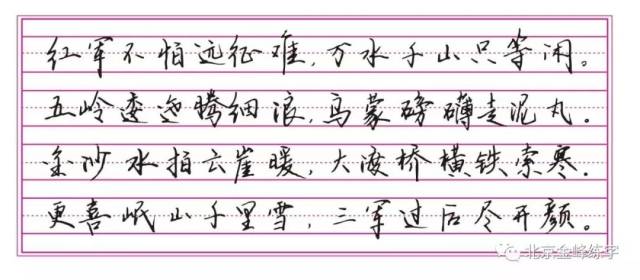 红军不怕远征难,万水千山只等闲。
五岭逶迤腾细浪,乌蒙磅礴走泥丸.
金沙水拍云崖暖,大渡桥横铁索寒.
更喜岷山千里雪,三军过后尽开颜。
北京金峰练字